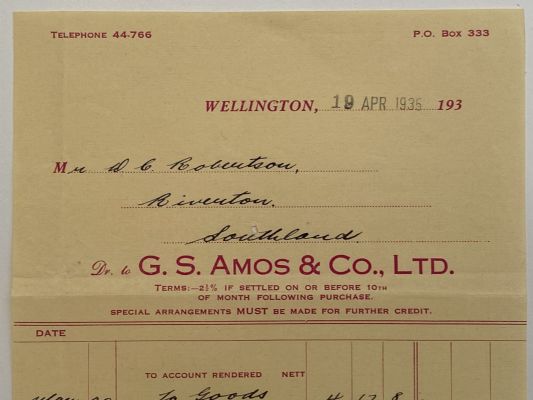 TELEPHONE 44-766 P.O. BOX 333
WELLINGTON, 19 APR 1935 193
Mr D C. Robertson,
Riverton.
Southland.
Dr. to G. S. AMOS & CO., LTD.
TERMS:—2½% IF SETTLED ON OR BEFORE 10TH
OF MONTH FOLLOWING PURCHASE.
SPECIAL ARRANGEMENTS MUST BE MADE FOR FURTHER CREDIT.
DATE
TO ACCOUNT RENDERED NETT
To Goods 4 17 8